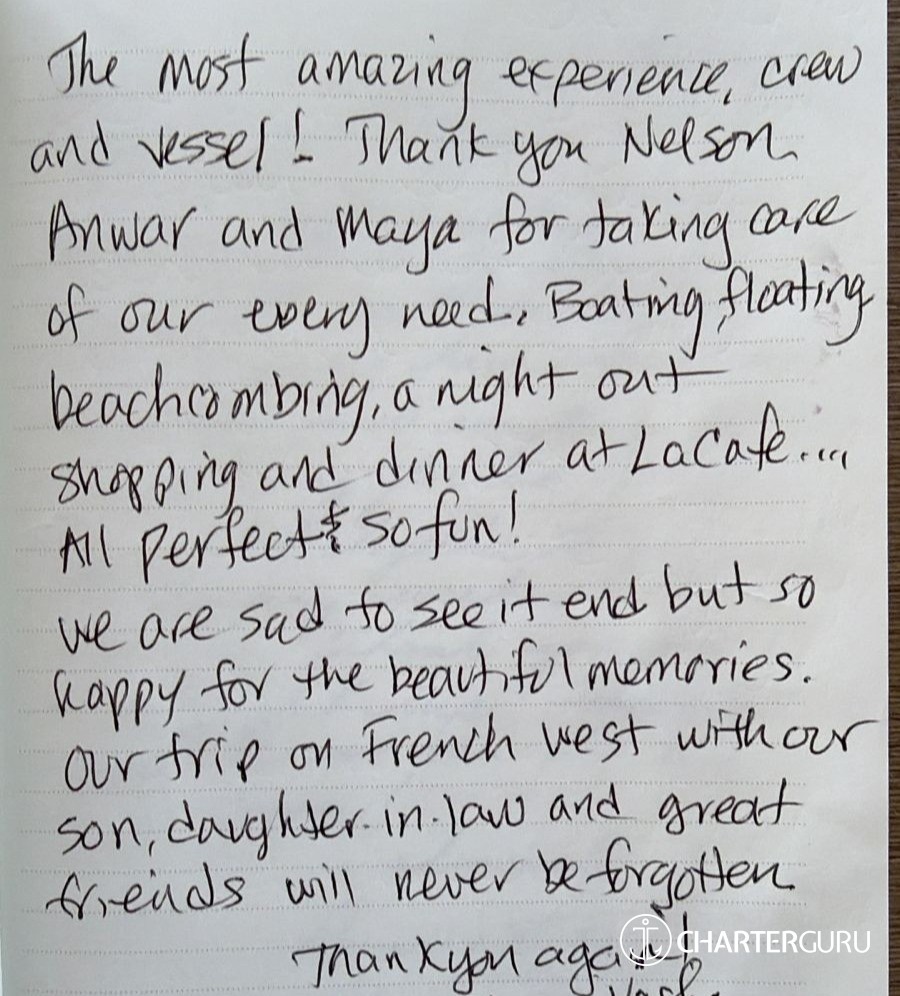 The most amazing experience, crew
and vessel! Thank you Nelson
Anwar and Maya for taking care
of our every need. Boating, floating
beachcombing, a night out
shopping and dinner at LaCafe....
All perfect & so fun!
we are sad to see it end but so
happy for the beautiful memories.
Our trip on French West with our
son, daughter-in-law and great
friends will never be forgotten
Thank you again!
CHARTERGURU